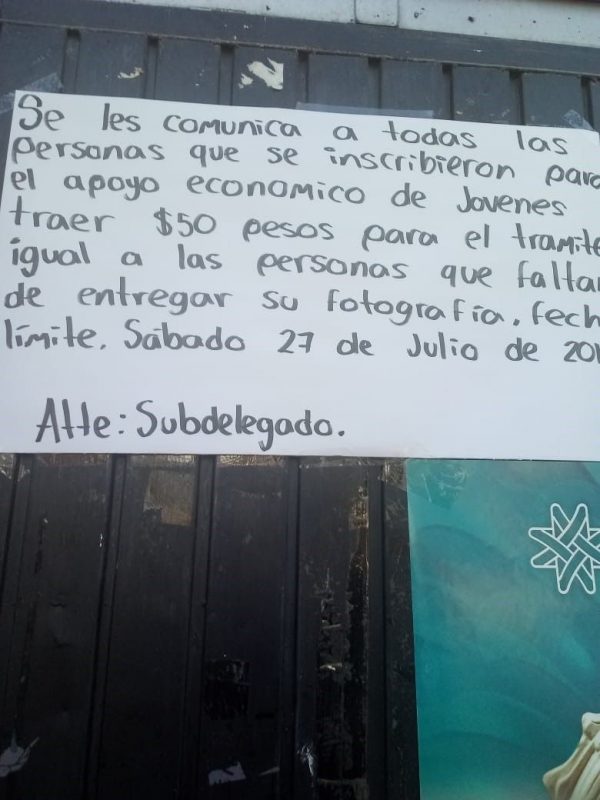 Se les comunica a todas las
personas que se inscribieron para
el apoyo economico de Jovenes
traer $50 pesos para el tramite
igual a las personas que faltan
de entregar su fotografía. fech
límite. Sábado 27 de Julio de 201
Atte: Subdelegado.